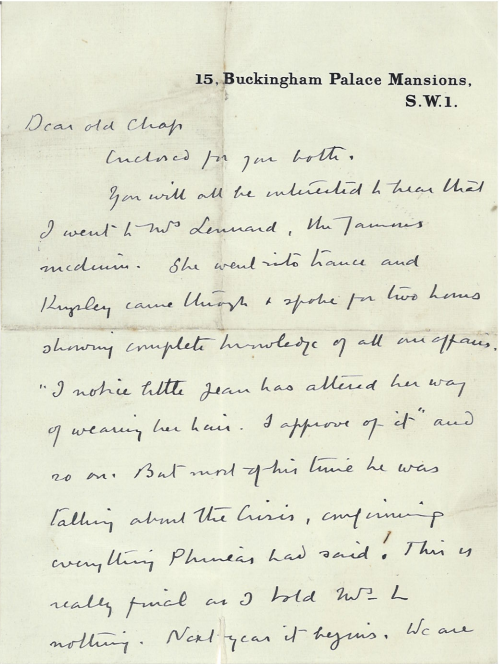 15, Buckingham Palace Mansions,
S.W.1.
Dear old Chap
Enclosed for you both.
You will all be interested to hear that
I went to Mrs Lennard, the famous
medium. She went into trance and
Kingsley came through & spoke for two hours
showing complete knowledge of all our affairs.
"I notice little Jean has altered her way
of wearing her hair. I approve of it" and
so on. But most of his time he was
talking about the Crisis, confirming
everything Phineas had said. This is
really final as I told Mrs L
nothing. Next year it begins. We are